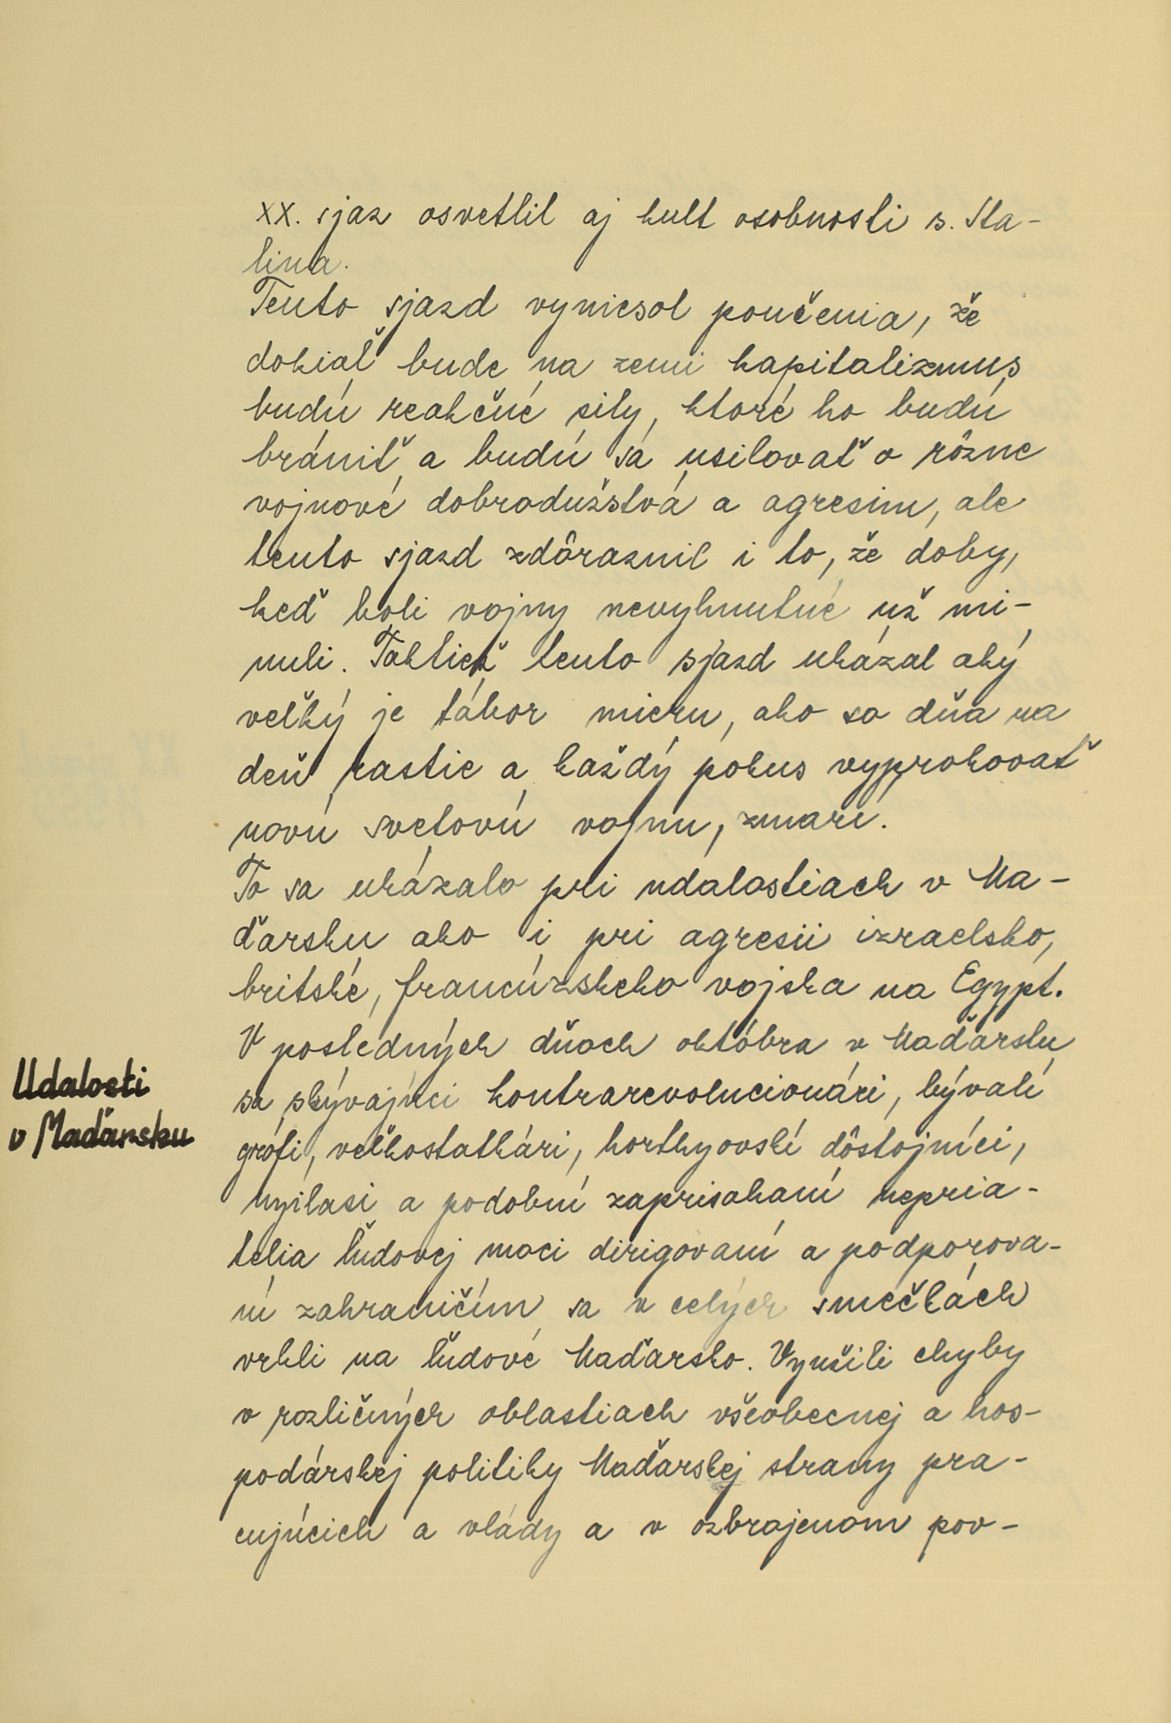 XX. sjaz osvetlil aj kult osobnosti s. Sta-
lina.
Tento sjazd vyniesol poučenia, že
dokiaľ bude na zemi kapitalizmus
budú reakčné sily, ktoré ho budú
brániť a budú sa usilovať o rôzne
vojnové dobrodužstvá a agresiu, ale
tento sjazd zdôraznil i to, že doby,
keď boli vojny nevyhnutné už mi-
nuli. Taktiež tento sjazd ukázal aký
veľký je tábor mieru, ako zo dňa na
deň rastie a každý pokus vyprokovať
novú svetovú vojnu, zmarí.
To sa ukázalo pri udalostiach v Ma-
ďarsku ako i pri agresii izraelsko,
britské, francúzskeho vojska na Egypt.
Udalosti
v Maďarsku
V posledných dňoch októbra v Maďarsku
sa skývajúci kontrarevolucionári, bývalí
grófi, veľkostatkári, horthyovskí dôstojníci,
nyilasi a podobní zaprisahaní nepria-
telia ľudovej moci dirigovaní a podporova-
ní zahraničím sa v celých smečkách
vrhli na ľudové Maďarsko. Využili chyby
v rozličných oblastiach všeobecnej a hos-
podárskej politiky Maďarskej strany pra-
cujúcich a vlády a v ozbrojenom pov-